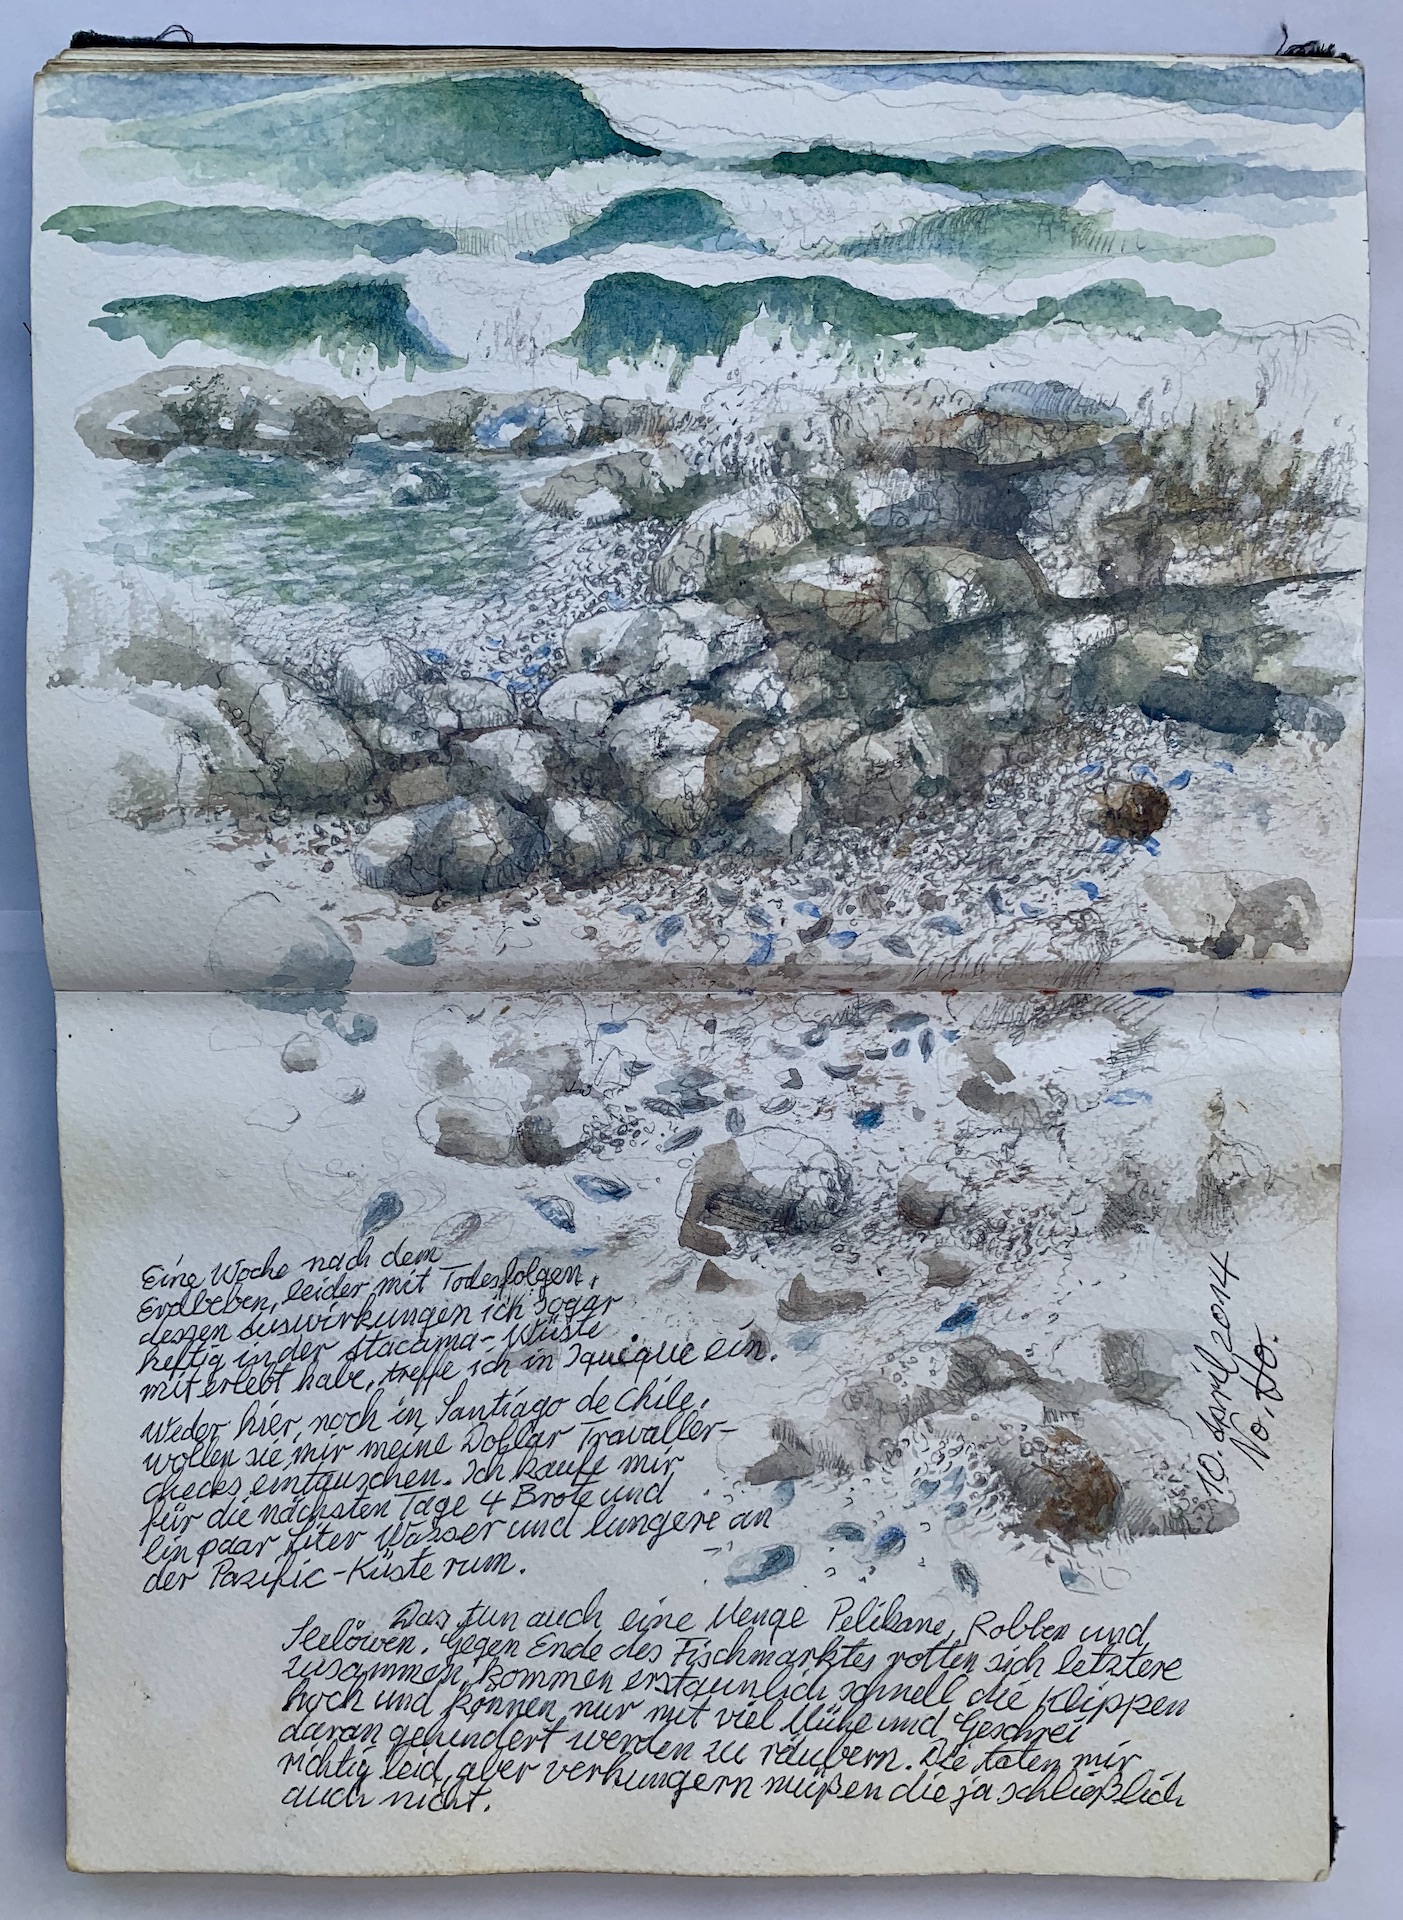 Eine Woche nach dem
Erdbeben, leider mit Todesfolgen,
dessen Auswirkungen ich sogar
heftig in der Atacama-Wüste
miterlebt habe, treffe ich in Iquique ein.
Weder hier, noch in Santiágo de Chile,
wollen sie mir meine Dollar Travaller-
checks eintauschen. Ich kaufe mir
für die nächsten Tage 4 Brote und
ein paar Liter Wasser und lungere an
der Pazific-Küste rum.
Das tun auch eine Menge Pelikane, Robben und
Seelöwen. Gegen Ende des Fischmarktes rotten sich letztere
zusammen, kommen erstaunlich schnell die Klippen
hoch und können nur mit viel Mühe und Geschrei
daran gehindert werden zu räubern. Die taten mir
richtig leid, aber verhungern müßen die ja schließlich
auch nicht.
10. April 2014
No. Ho.